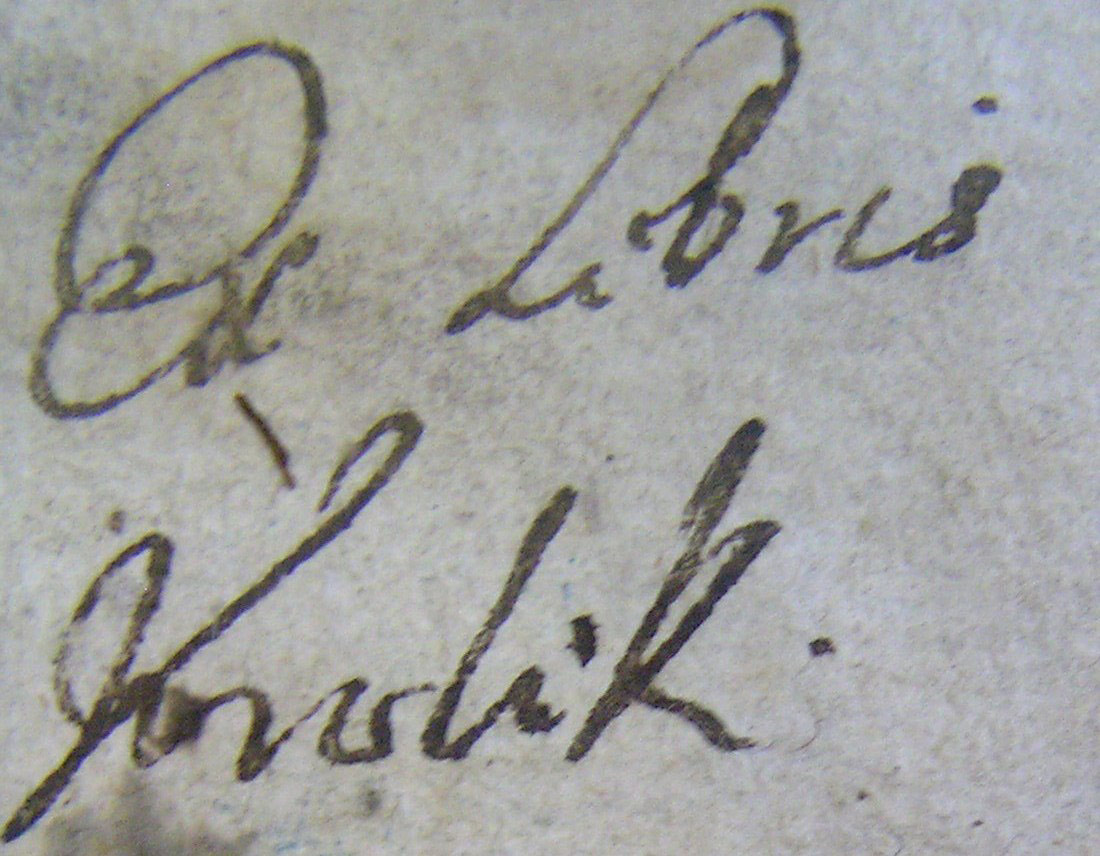 Ex Libris
Krolik.